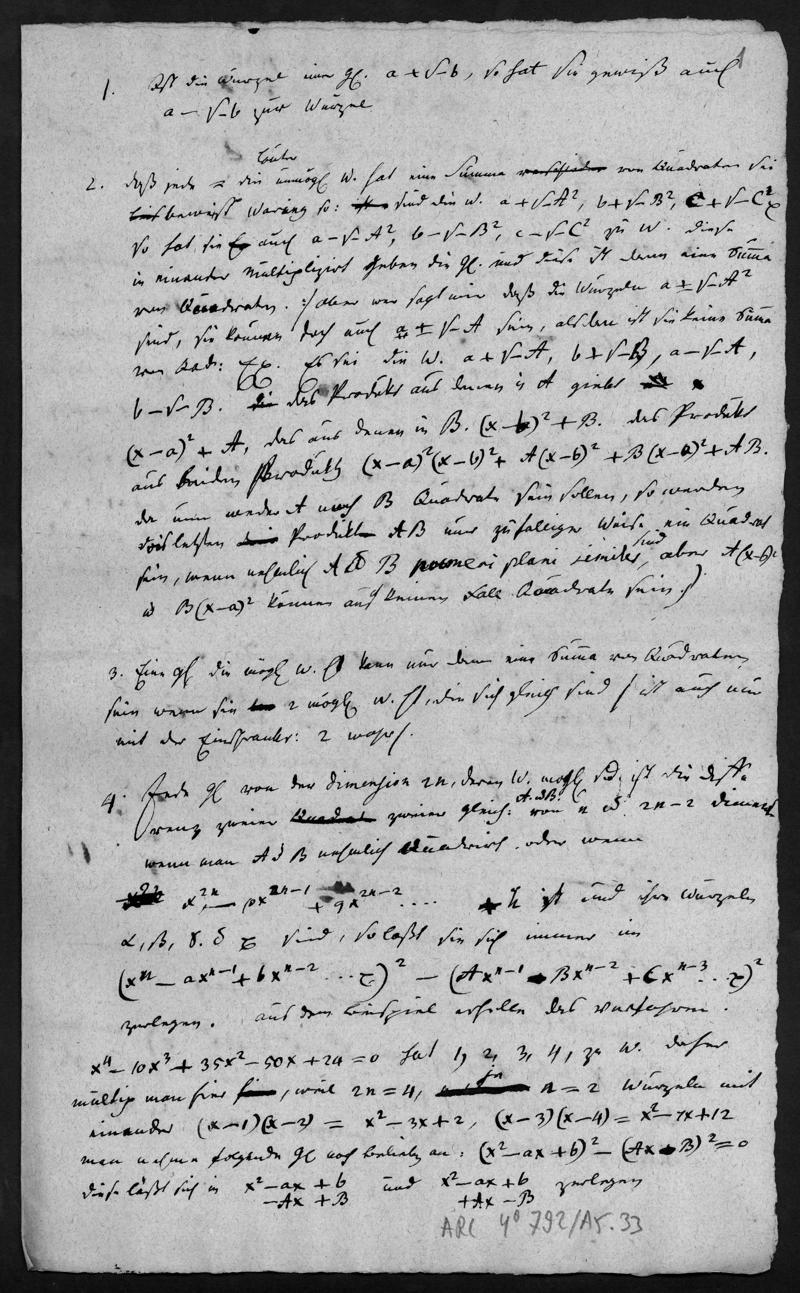 1
1. Ist die Wurzel einer gl. a + √-b, so hat sie gewiß auch
a - √-b zur Wurzel
lauter
2. daß jede = die unmögl W. hat eine Summa verschiedener von Quadraten sei
beweißt Waring so: sind die W. a+√-A², b+√-B², C+√-C²
so hat sie auch a-√-A², b-√-B², c-√-C² zu W. diese
in einander multiplizirt geben die gl. und diese ist dann eine Summa
von Quadraten. :/ aber wer sagt mir daß die Wurzeln a ± √-A²
sind, sie können doch auch a ± √-A sein, alsdann ist sie keine Summa
von Quad: Ex. Es sei die W. a+√-A, b+√-B, a-√-A,
b-√-B. das Produkt aus denen in A giebt
(x-a)² + A, das aus denen in B. (x-b)² + B. das Produkt
aus beiden Produkten (x-a)²(x-b)² + A(x-b)² + B(x-a)² + AB.
da nun weder A noch B Quadrate sein sollen, so werden
letzten Produkt AB nur zufälliger Weise ein Quadrat
sein, wenn nehmlich A u B numeri plani similes sind, aber A(x-b)²
u B(x-a)² können auf keinen Fall Quadrate sein /)
3. Eine gl die mögl W. hat kann nur dann eine Summa von Quadraten
sein wenn sie 2 mögl W. hat, die sich gleich sind / ist auch nur
mit der Einschränk: 2 wahr /.
4. Jede gl von der Dimension 2n, deren W. mögl sind, ist die Diffe-
renz zweier Quadrat zweier gleich: A. u B. von n u 2n-2 Dimens
wenn man A u B nehmlich Quadrirt. oder wenn
x²ⁿ - px²ⁿ⁻¹ + qx²ⁿ⁻² .... + h ist und ihre Wurzeln
α, β, γ. δ sind, so laßt sie sich immer in
(xⁿ - axⁿ⁻¹ + bxⁿ⁻² ...)² - (Axⁿ⁻¹ - Bxⁿ⁻² + Cxⁿ⁻³ ..)²
zerlegen. aus dem Beispiel erhellt das Verfahren.
x⁴ - 10x³ + 35x² - 50x + 24 = 0 hat 1, 2, 3, 4, zu W. daher
multip man hier, weil 2n = 4, je n = 2 Wurzeln mit
einander (x-1)(x-2) = x² - 3x + 2, (x-3)(x-4) = x² - 7x + 12
man nehme folgende gl nach belieben an: (x² - ax + b)² - (Ax - B)² = 0
diese läßt sich in x² - ax + b und x² - ax + b zerlegen
- Ax + B + Ax - B
ARC 4° 792/A5.33